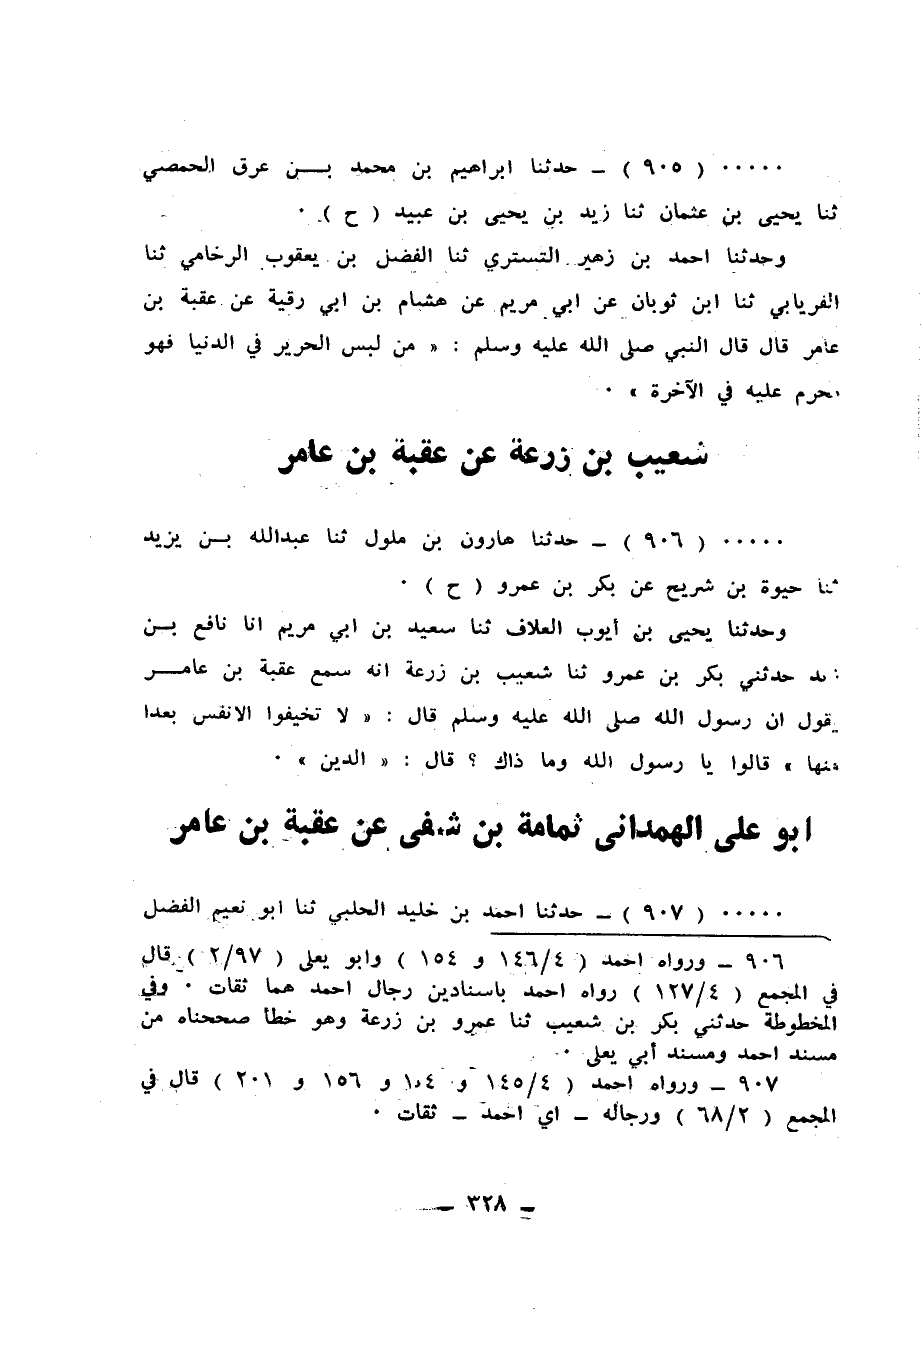 ..... ( ٩٠٥ ) ــ حدثنا ابراهيم بن محمد بــن عرق الحمصي
ثنا يحيى بن عثمان ثنا زيد بن يحيى بن عبيد ( ح ) .
وحدثنا احمد بن زهير التستري ثنا الفضل بن يعقوب الرخامي ثنا
الفريابي ثنا ابن ثوبان عن ابي مريم عن هشام بن ابي رقية عن عقبة بن
عامر قال قال النبي صلى الله عليه وسلم : « من لبس الحرير في الدنيا فهو
محرم عليه في الآخرة » .
شعيب بن زرعة عن عقبة بن عامر
..... ( ٩٠٦ ) ــ حدثنا هارون بن ملول ثنا عبدالله بــن يزيد
ثنا حيوة بن شريح عن بكر بن عمرو ( ح ) .
وحدثنا يحيى بن أيوب العلاف ثنا سعيد بن ابي مريم انا نافع بــن
حدثني بكر بن عمرو ثنا شعيب بن زرعة انه سمع عقبة بن عامــر
يقول ان رسول الله صلى الله عليه وسلم قال : « لا تخيفوا الانفس بعدا
منها » قالوا يا رسول الله وما ذاك ؟ قال : « الدين » .
ابو على الهمدانى ثمامة بن شفى عن عقبة بن عامر
..... ( ٩٠٧ ) ــ حدثنا احمد بن خليد الحلبي ثنا ابو نعيم الفضل
٩٠٦ ــ ورواه احمد ( ١٤٦/٤ و ١٥٤ ) وابو يعلى ( ٢/٩٧ ) قال
في المجمع ( ١٢٧/٤ ) رواه احمد باسنادين رجال احمد هما ثقات . وفي
المخطوطة حدثني بكر بن شعيب ثنا عمرو بن زرعة وهو خطأ صححناه من
مسند احمد ومسند أبي يعلى .
٩٠٧ ــ ورواه احمد ( ١٤٥/٤ و و ١٥٦ و ٢٠١ ) قال في
المجمع ( ٦٨/٢ ) ورجاله ــ اي احمد ــ ثقات .
ــ ٣٢٨ ــ